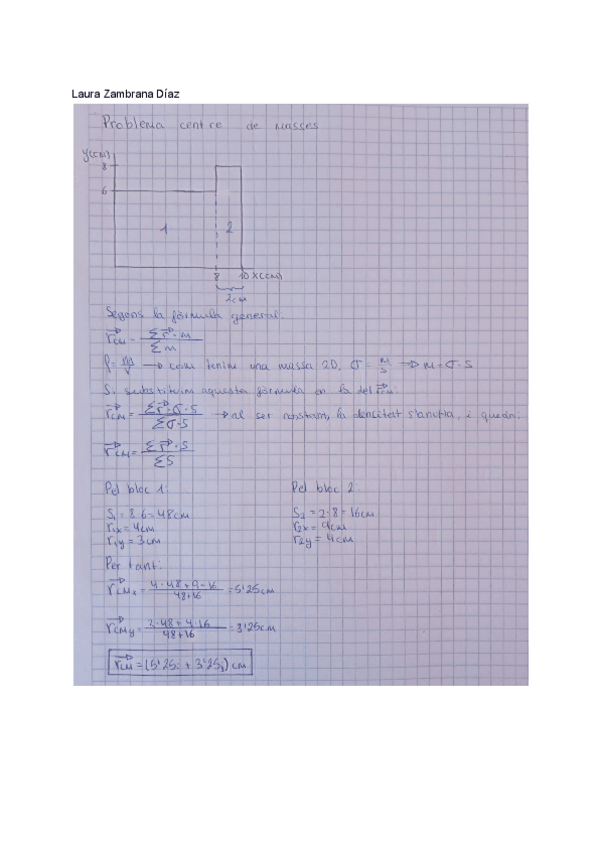 Laura Zambrana Díaz
Problema centre de masses
y(cm)
8
6
1 2
8 10 x(cm)
2cm
Segons la fórmula general:
r⃗CM = Σr⃗·m / Σm
ρ = m/V → com tenim una massa 2D, σ = m/S → m = σ·S
Si substituïm aquesta fórmula en la del r⃗CM:
r⃗CM = Σr⃗·σ·S / Σσ·S → al ser constant, la densitat s'anul·la, i queda:
r⃗CM = Σr⃗·S / ΣS
Pel bloc 1: Pel bloc 2:
S1 = 8·6 = 48cm S2 = 2·8 = 16cm
r1x = 4cm r2x = 9cm
r1y = 3cm r2y = 4cm
Per tant:
r⃗CMx = 4·48+9·16 / 48+16 = 5'25cm
r⃗CMy = 3·48+4·16 / 48+16 = 3'25cm
r⃗CM = (5'25i + 3'25j) cm